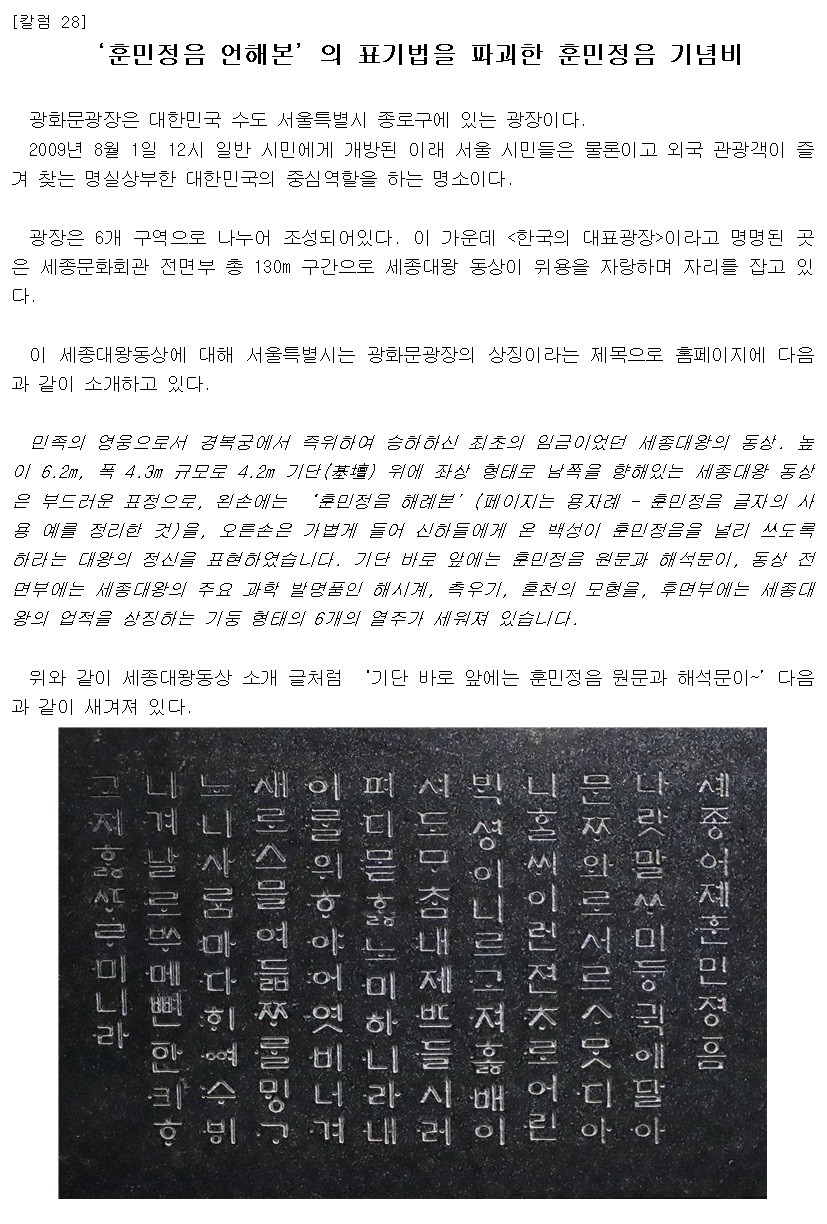 [칼럼 28]
‘훈민정음 언해본’의 표기법을 파괴한 훈민정음 기념비
광화문광장은 대한민국 수도 서울특별시 종로구에 있는 광장이다.
2009년 8월 1일 12시 일반 시민에게 개방된 이래 서울 시민들은 물론이고 외국 관광객이 즐
겨 찾는 명실상부한 대한민국의 중심역할을 하는 명소이다.
광장은 6개 구역으로 나누어 조성되어있다. 이 가운데 <한국의 대표광장>이라고 명명된 곳
은 세종문화회관 전면부 총 130m 구간으로 세종대왕 동상이 위용을 자랑하며 자리를 잡고 있
다.
이 세종대왕동상에 대해 서울특별시는 광화문광장의 상징이라는 제목으로 홈페이지에 다음
과 같이 소개하고 있다.
민족의 영웅으로서 경복궁에서 즉위하여 승하하신 최초의 임금이었던 세종대왕의 동상. 높
이 6.2m, 폭 4.3m 규모로 4.2m 기단(基壇) 위에 좌상 형태로 남쪽을 향해있는 세종대왕 동상
은 부드러운 표정으로, 왼손에는 ‘훈민정음 해례본’(페이지는 용자례 - 훈민정음 글자의 사
용 예를 정리한 것)을, 오른손은 가볍게 들어 신하들에게 온 백성이 훈민정음을 널리 쓰도록
하라는 대왕의 정신을 표현하였습니다. 기단 바로 앞에는 훈민정음 원문과 해석문이, 동상 전
면부에는 세종대왕의 주요 과학 발명품인 해시계, 측우기, 혼천의 모형을, 후면부에는 세종대
왕의 업적을 상징하는 기둥 형태의 6개의 열주가 세워져 있습니다.
위와 같이 세종대왕동상 소개 글처럼 ‘기단 바로 앞에는 훈민정음 원문과 해석문이~’ 다음
과 같이 새겨져 있다.
셰종어제훈민졍ᅙᅳᆷ
나랏말ᄊᆞ미듕귁에달아
문ᄍᆞ와로서르ᄉᆞᄆᆞᆺ디아
니ᄒᆞᆯᄊᆡ이런젼ᄎᆞ로어린
ᄇᆡᆨ셩이니르고져ᄒᆞᇙ배이
셔도ᄆᆞᄎᆞᆷ내제ᄠᅳ들시러
펴디몯ᄒᆞᇙ노미하니라내
이ᄅᆞᆯ위ᄒᆞ야어엿비너겨
새로스믈여듧ᄍᆞᄅᆞᆯᄆᆡᇰᄀᆞ
노니사ᄅᆞᆷ마다ᄒᆡᅇᅧ수ᄫᅵ
니겨날로ᄡᅮ메뼌한킈ᄒᆞ
고져ᄒᆞᇙᄯᆞᄅᆞ미니라